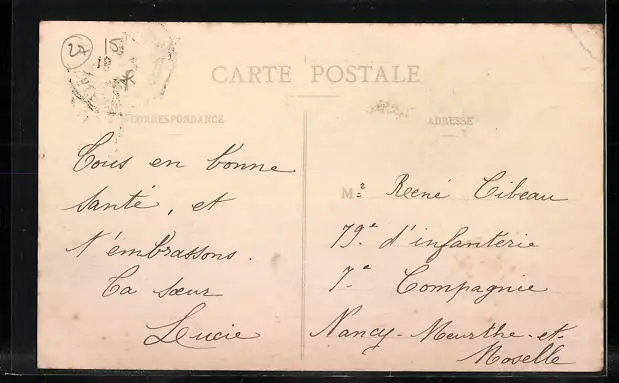 27
15
10
CARTE POSTALE
CORRESPONDANCE
ADRESSE
Tous en bonne
santé, et
t'embrassons.
Ta sœur
Lucie
Mr René Cibeau
79e d'infanterie
7e Compagnie
Nancy-Meurthe-et-
Moselle